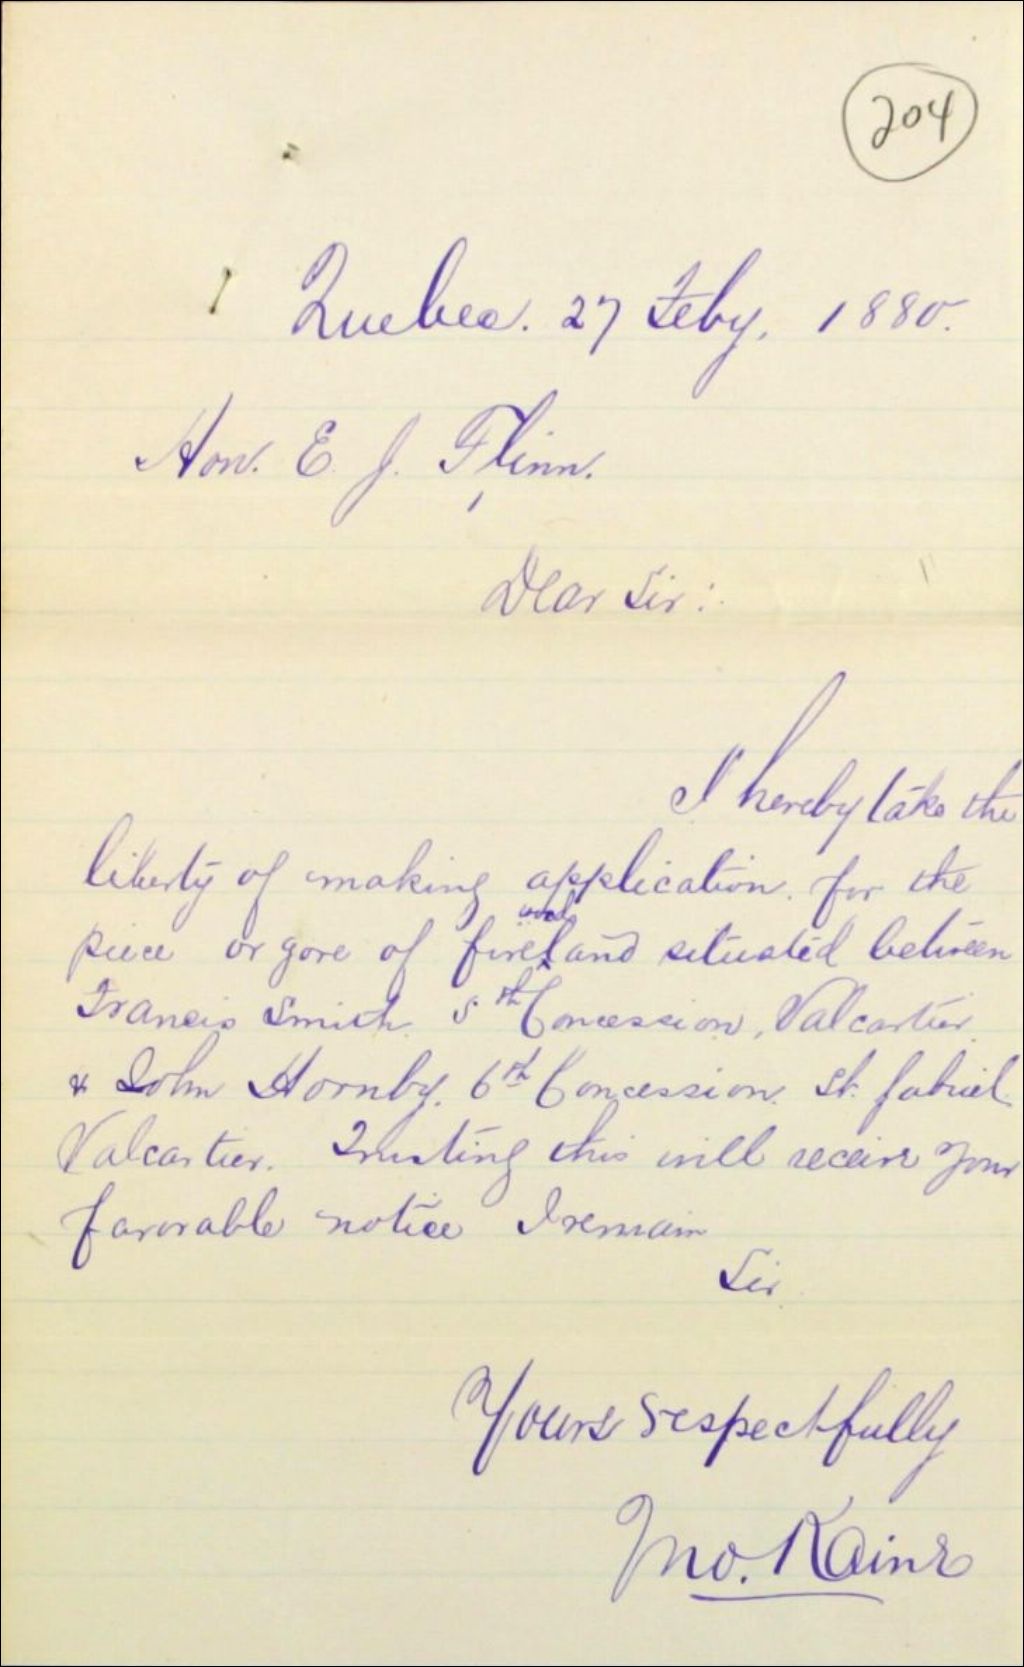 204
Quebec. 27 Feby. 1880.
Hon. E. J. Flinn.
Dear Sir:
I hereby take the
liberty of making application for the
piece or gore of fire wood land situated between
Francis Smith 5th Concession, Valcartier
& John Hornby. 6th Concession. St. Gabriel
Valcartier. Trusting this will receive your
favorable notice I remain
Sir
Yours respectfully
Jno. Kaine